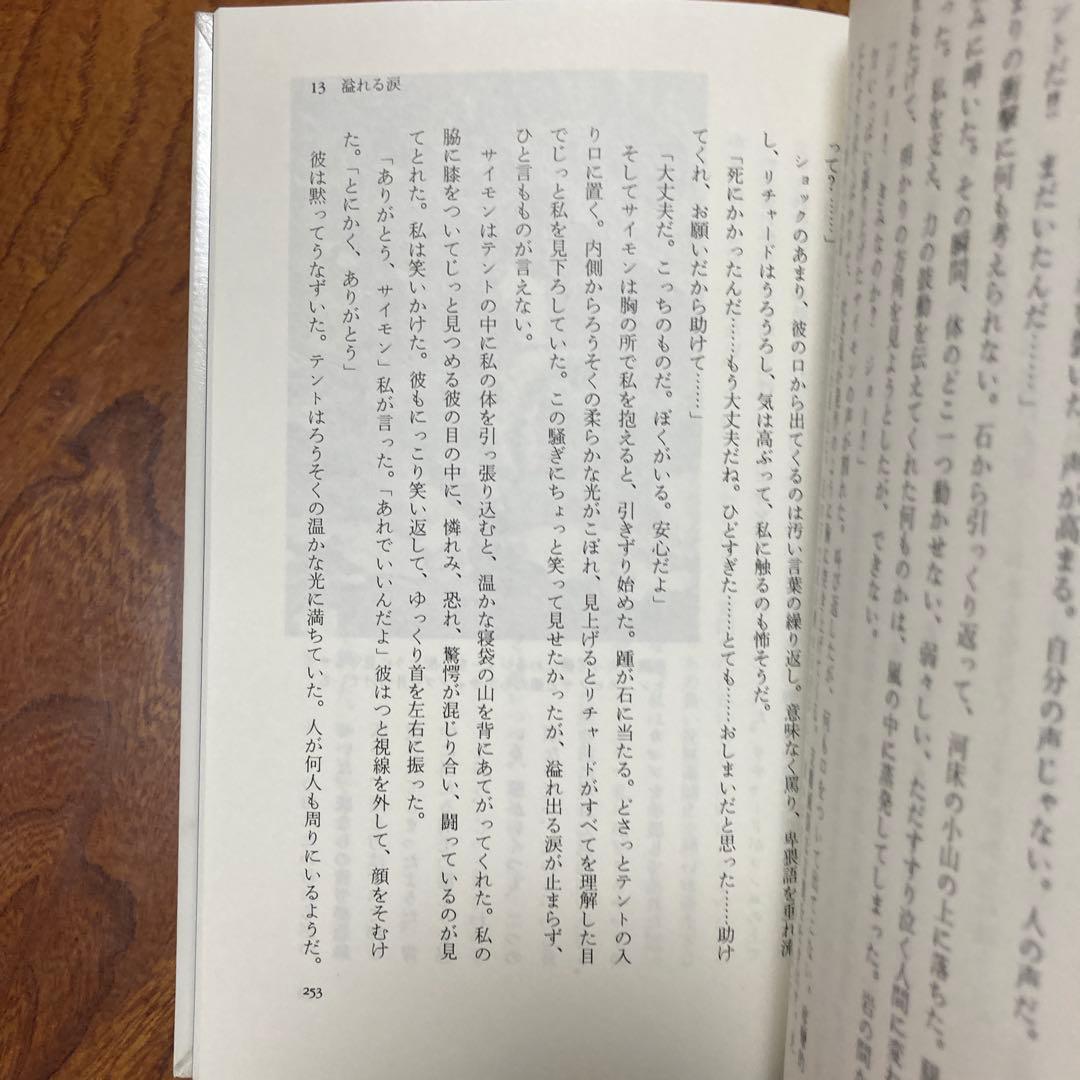 ットだ!! まだいたんだ……」
声が高まる。自分の声じゃない。人の声だ。
まりの衝撃に何も考えられない。石から引っくり返って、河床の小山の上に落ちた。
た。私を支え、力の波動を伝えてくれた何ものかは、風の中に蒸発してしまった。岩の間
って?……」
ショックのあまり、彼の口から出てくるのは汚い言葉の繰り返し。意味なく罵り、卑猥語を垂れ流
し、リチャードはうろうろし、気は高ぶって、私に触るのも怖そうだ。
「死にかかったんだ……もう大丈夫だね。ひどすぎた……とても……おしまいだと思った……助け
てくれ、お願いだから助けて……」
「大丈夫だ。こっちのものだ。ぼくがいる。安心だよ」
そしてサイモンは胸の所で私を抱えると、引きずり始めた。踵が石に当たる。どさっとテントの入
り口に置く。内側からろうそくの柔らかな光がこぼれ、見上げるとリチャードがすべてを理解した目
でじっと私を見下ろしていた。この騒ぎにちょっと笑って見せたかったが、溢れ出る涙が止まらず、
ひと言ももの が言えない。
サイモンはテントの中に私の体を引っ張り込むと、温かな寝袋の山を背にあてがってくれた。私の
脇に膝をついてじっと見つめる彼の目の中に、憐れみ、恐れ、驚愕が混じり合い、闘っているのが見
てとれた。私は笑いかけた。彼もにっこり笑い返して、ゆっくり首を左右に振った。
「ありがとう、サイモン」私が言った。「あれでいいんだよ」彼はつと視線を外して、顔をそむけ
た。「とにかく、ありがとう」
彼は黙ってうなずいた。テントはろうそくの温かな光に満ちていた。人が何人も周りにいるようだ。
13 溢れる涙
253